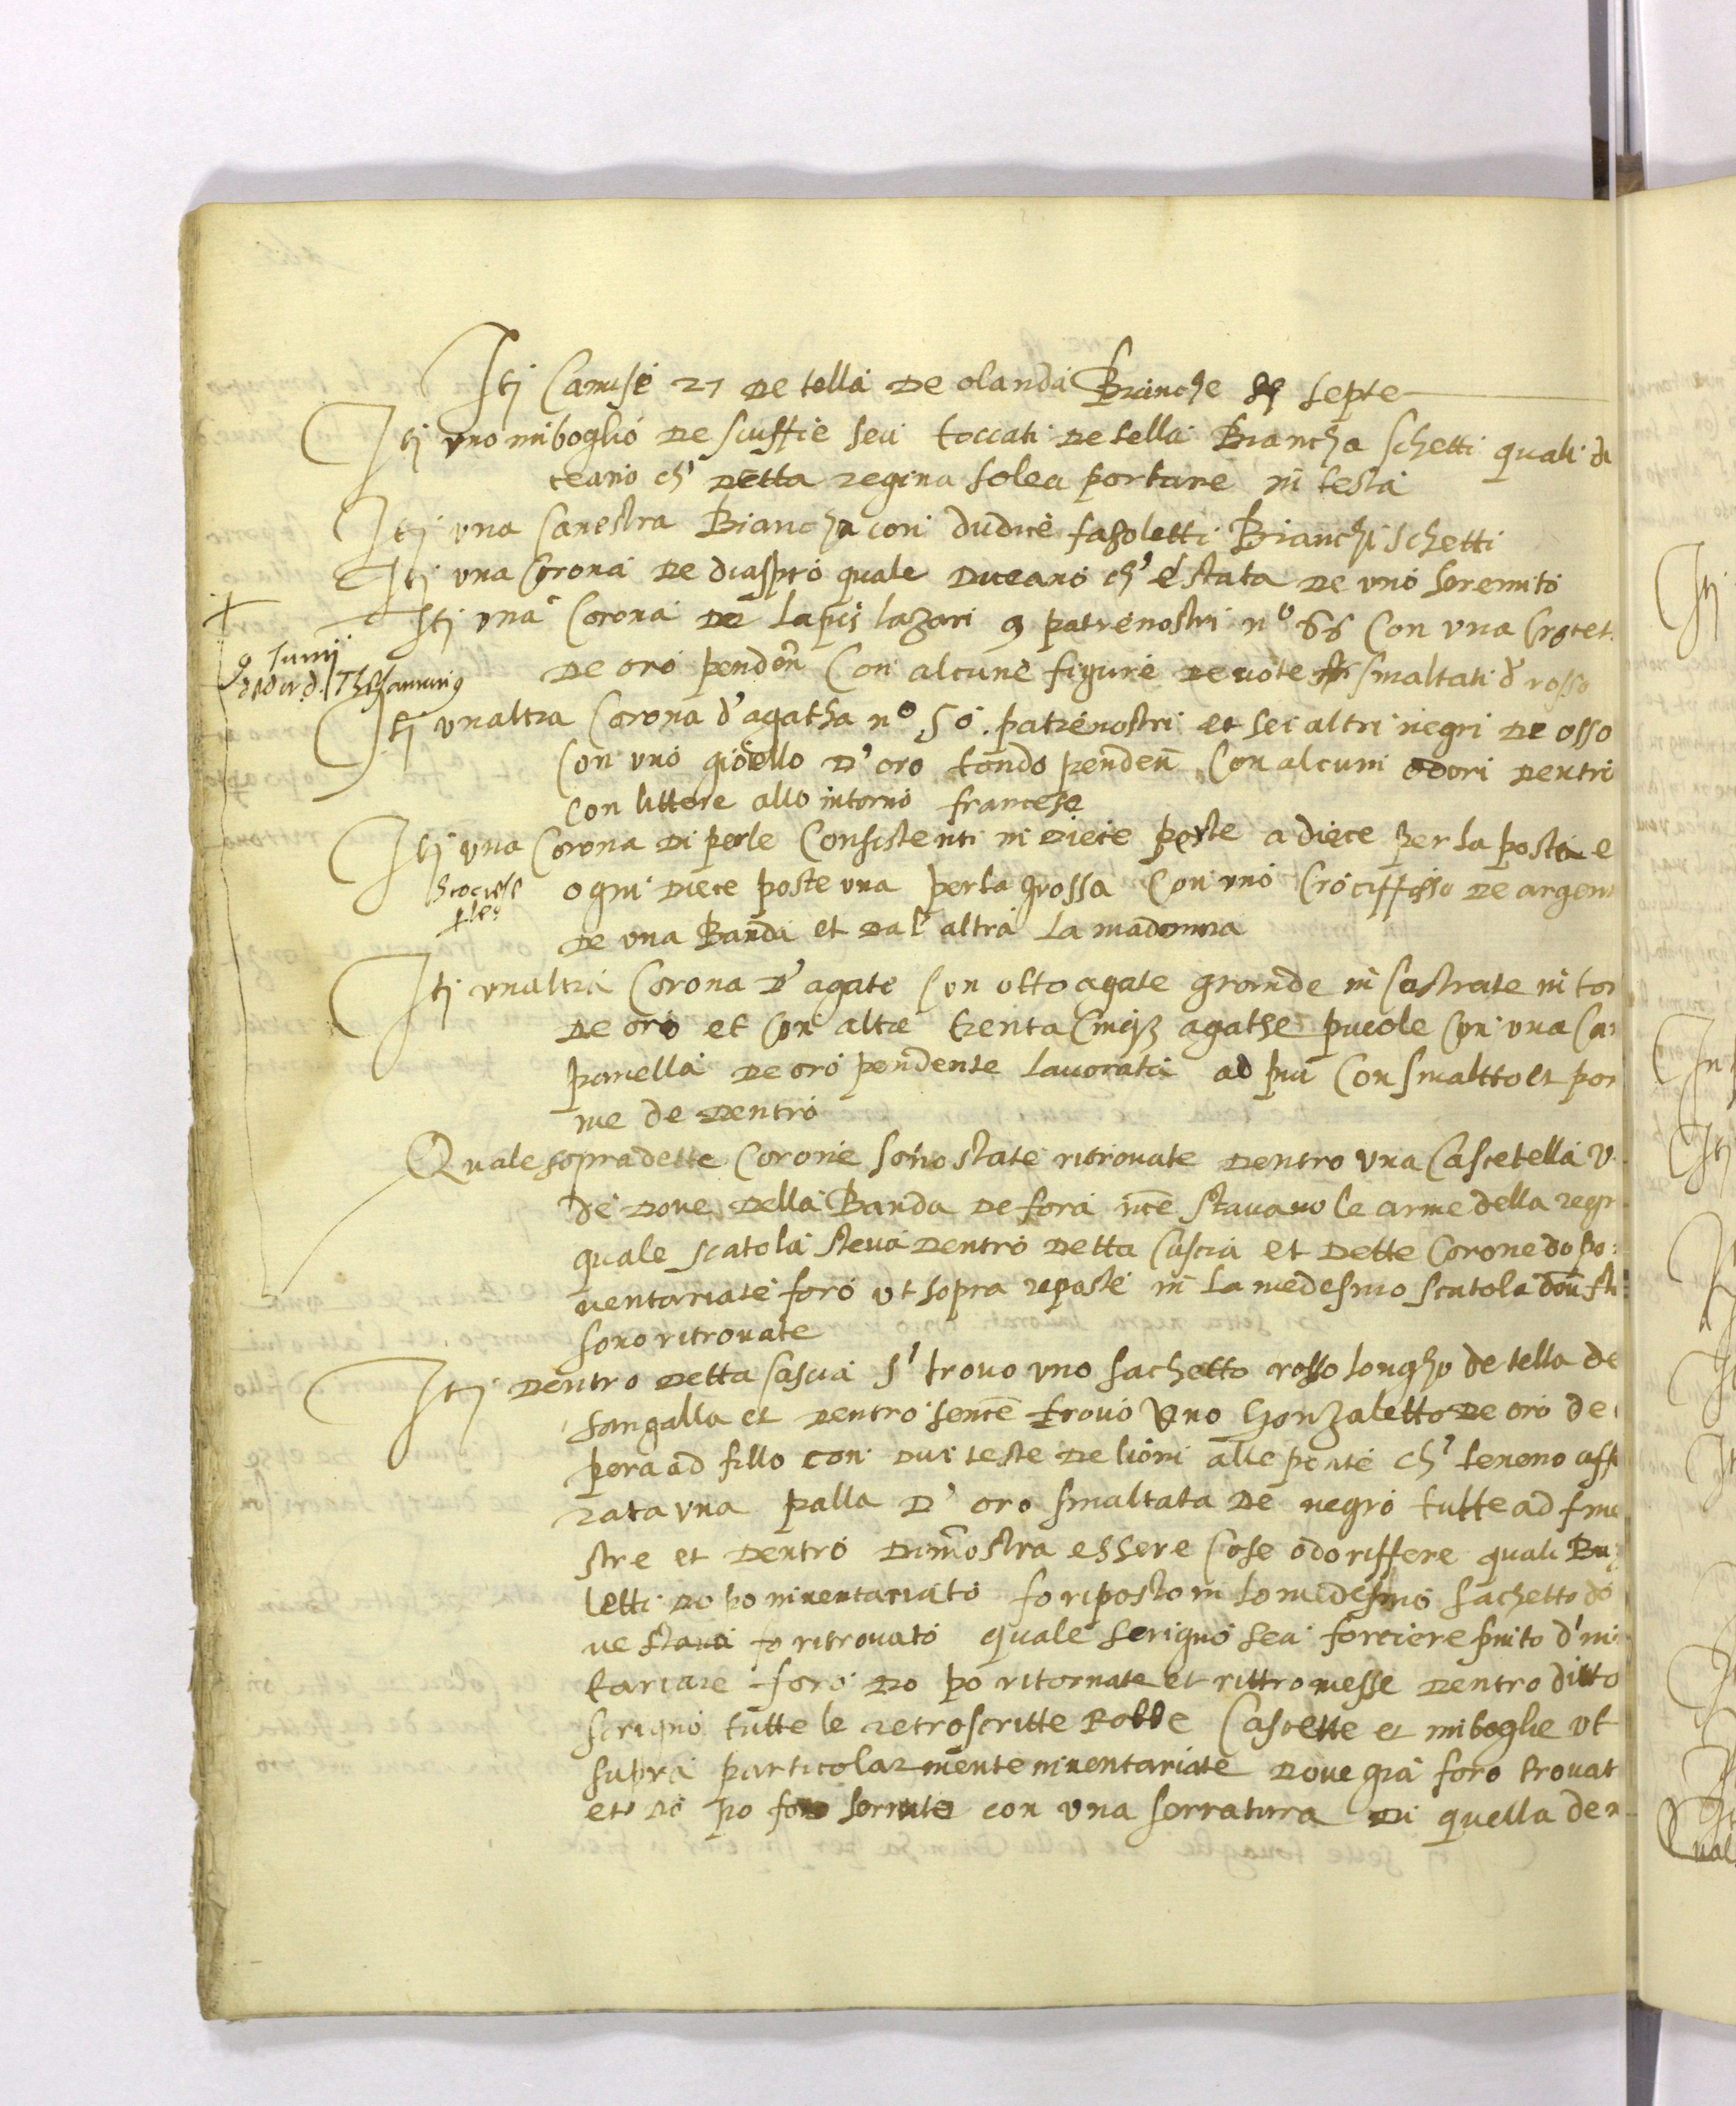 Itj Camise 27 de tella de olanda Bianche septe
Itj uno miboglio de scuffie seu toccati de tella Biancha schetti quali di
ceano ch' detta regina solea portare in testa
Itj una Canestra Biancha con dudice fazoletti Bianchi schetti
Itj una Corona de diaspro quale diceano ch' è stata de uno heremito
Itj una Corona de lapis lazari patrenostri n° 66 Con una Crocet
de oro penden Con alcune figure devote smaltati d' rosso
9 Junij
Thesaurarius
Itj unaltra Corona d'agatha n° 50. patrenostri et sei altri negri de osso
Con uno gioiello d'oro tondo penden Con alcuni odori dentri
Con littere allo intorno francese
Itj una Corona di perle Consistenti in diece poste a diece per la posta e
ogni diece poste una perla grossa Con uno Crociffisso de argen
de una Banda et dal' altra la madonna
Itj unaltra Corona d'agate Con otto agate grande in Castrate in tor
de oro et Con altre trenta Cinque agathe picole Con una Cam
panella de oro pendente lavorata ad Con smaltto et pom
me de dentro
Quale sopradette Corone sono state ritrovate dentro una Cascetella v
de dove della Banda de fora nce stavano le arme della regi
quale scatola steva dentro detta Cascia et dette Corone dopo
ventariate foro ut sopra reposte in la medesmo scatola
sono ritrovate
Itj dentro detta Cascia s' trovo uno sachetto rosso longho de tella de
sangalla et dentro sence trovò uno de oro de
pera ad fillo con dui teste de lioni alle ponte ch' teneno aff
rata una palla d' oro smaltata de negro tutte ad fine
stre et dentro dimostra essere Cose odoriffere quali
letti dopo inventariato fo riposto in lo medesmo sachetto do
ve stava fo ritrovato quale scrigno seu forciere finito d'in
tariare foro dopo ritornate et rittromesse dentro ditto
scrigno tutte le retroscritte Robbe Cascette et miboglie ut
supra particolarmente inventariate dove già foro trovat
et dopo foro serrate con una serratura di quella de